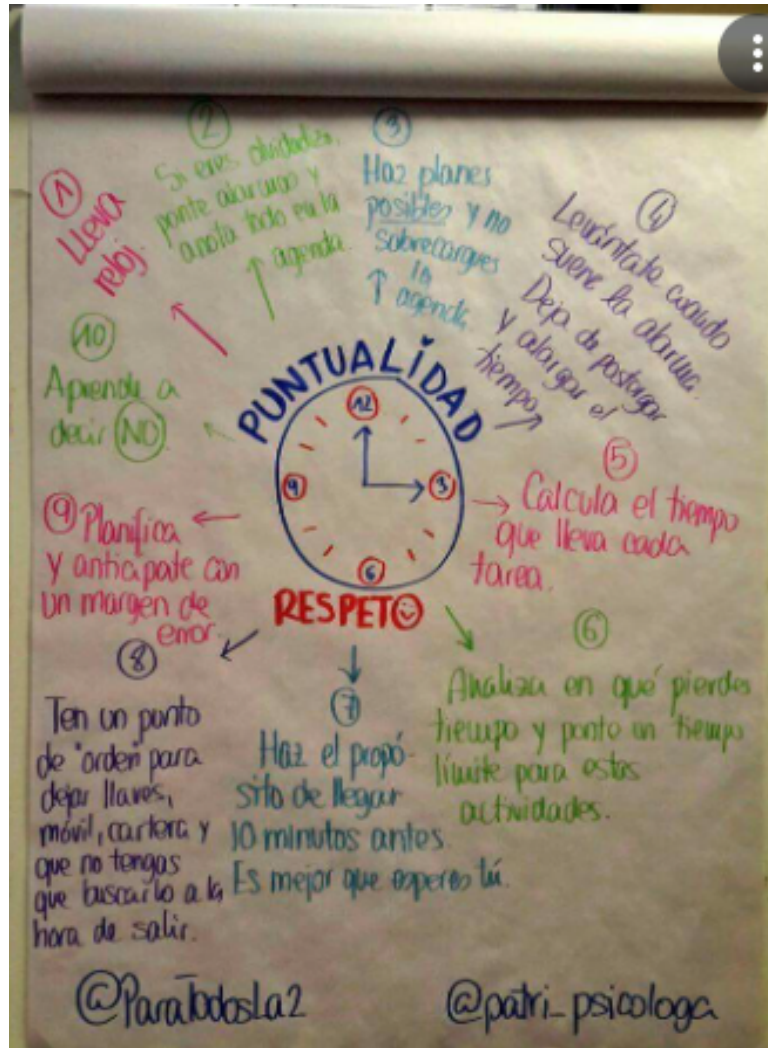 PUNTUALIDAD
12
3
6
9
RESPETO
1
Lleva
reloj.
2
Si eres olvidadizo,
ponte alarmas y
anota todo en la
agenda.
3
Haz planes
posibles y no
sobrecargues
la
agenda
4
Levántate cuando
suene la alarma.
Deja de postergar
y alargar el
tiempo
5
Calcula el tiempo
que lleva cada
tarea.
6
Analiza en qué pierdes
tiempo y ponte un tiempo
límite para estas
actividades.
7
Haz el propó-
sito de llegar
10 minutos antes.
Es mejor que esperes tú.
8
Ten un punto
de "orden" para
dejar llaves,
móvil, cartera y
que no tengas
que buscarlo a la
hora de salir.
9 Planifica
y anticipate con
un margen de
error.
10
Aprende a
decir NO
@ParaTodosLa2
@patri_psicologa